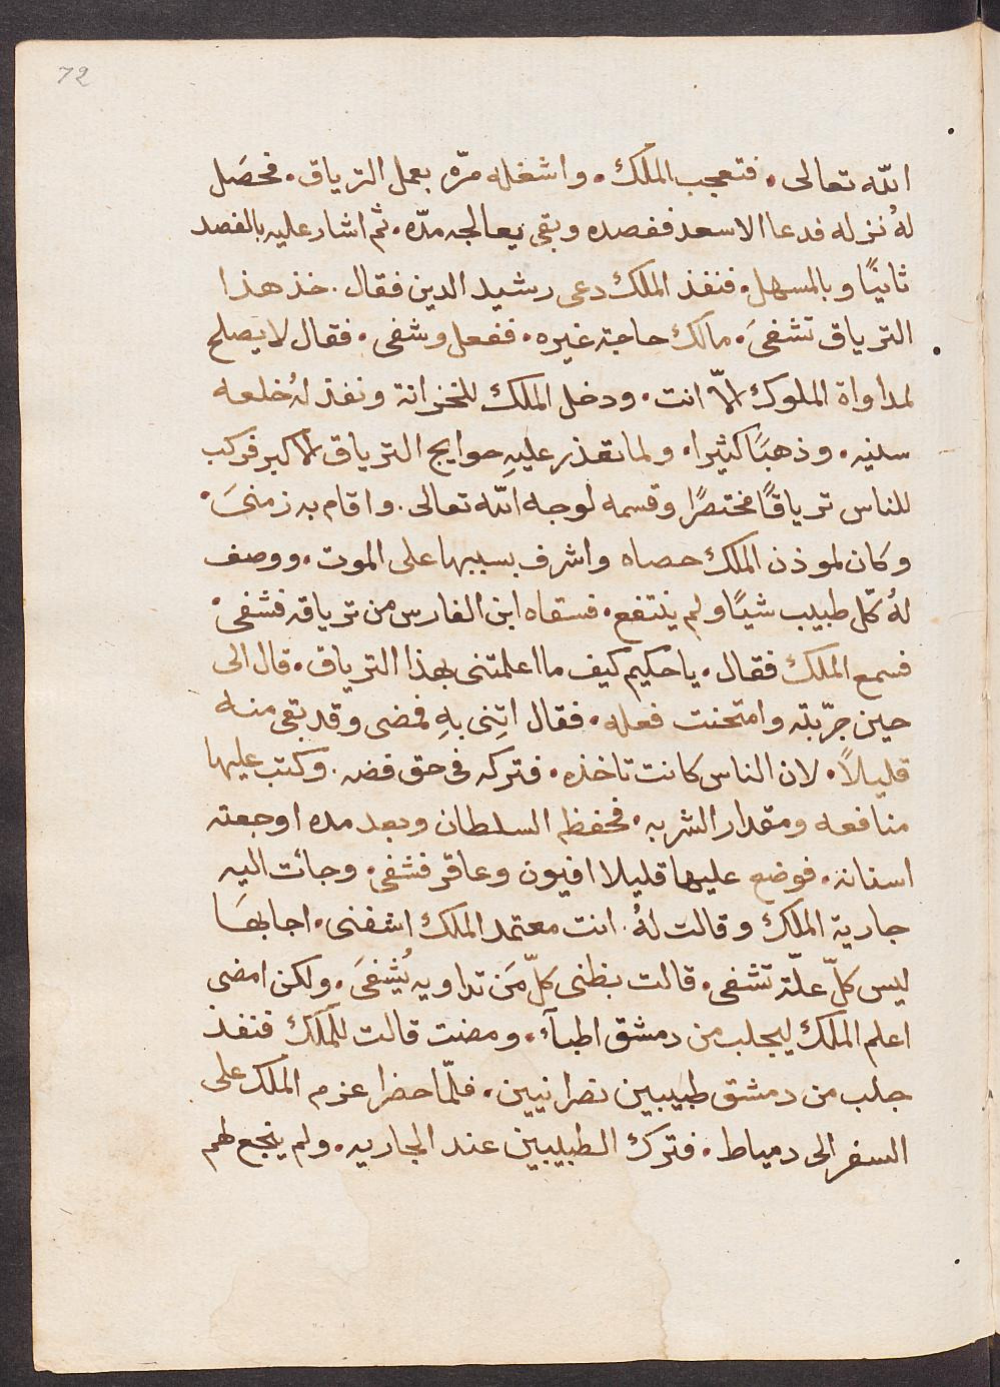 72
الله تعالى. فتعجب الملك. واشغله مرّه بعمل الترياق. فحصَل
لهُ نزله فدعا الاسعد ففصده وبقى يعالجه مدّه. ثم اشار عليه بالفصد
ثانيًا وبالمسهل. فنفذ الملك دعى رشيد الدين فقال. خذ هذا
الترياق تشفىَ. مالك حاجة غيره. ففعل وشفى. فقال لا يصلح
لمداواة الملوك الّا انت. ودخل الملك للخزانة ونفذ لهُ خلعه
سنيه. وذهبًا كثيرا. ولما تعذر عليهِ حوايج الترياق الاكبر فركب
للناس ترياقًا مختصرًا وقسمه لوجه الله تعالى. واقام به زمنىَ.
وكان لموذن الملك حصاه واشرف بسببها على الموت. ووصف
لهُ كل طبيب شيًا ولم ينتفع. فسقاه ابن الفارس من ترياقه فشفى.
فسمع الملك فقال. يا حكيم كيف ما اعلمتنى بهذا الترياق. قال الى
حين جرّبته وامتحنت فعله. فقال اتِنى بهِ فمضى وقد بقى منه
قليلاً. لان الناس كانت تاخذه. فتركه فى حق فضه. وكتب عليها
منافعه ومقدار الشربه. فحفظه السلطان وبعد مده اوجعته
اسنانه. فوضع عليها قليلا افيون وعاقر فشفى. وجائت اليه
جارية الملك وقالت لهُ. انت معتمد الملك اشفنى. اجابهَا
ليس كلّ علّة تشفى. قالت بظنى كلّ مَن تداويه يُشفىَ. ولكن امضى
اعلم الملك ليجلب من دمشق اطبآء. ومضت قالت للملك فنفذ
جلب من دمشق طبيبين نصرانيين. فلمّا حضرا عزم الملك على
السفر الى دمياط. فترك الطبيبين عند الجاريه. ولم ينجع لهم